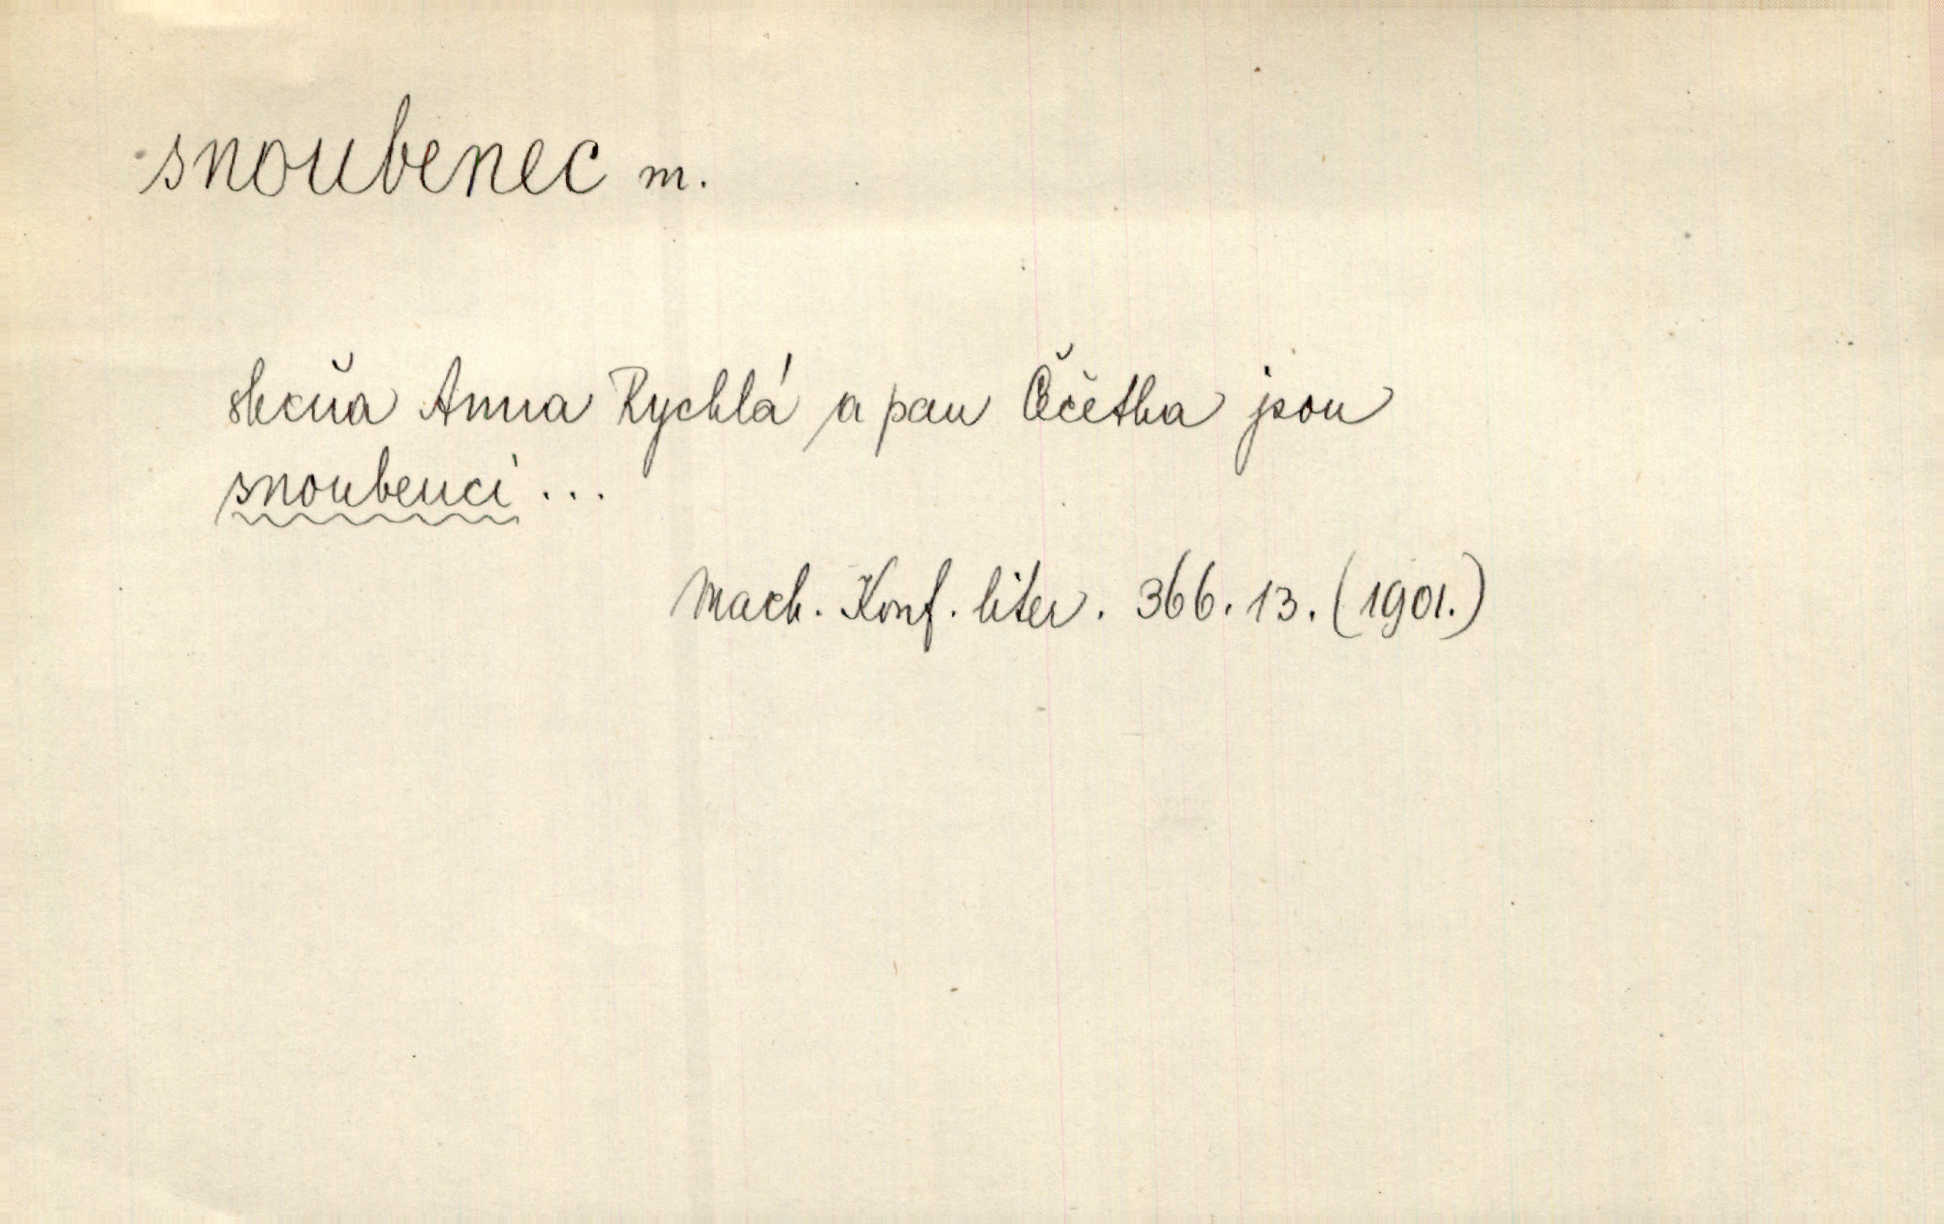 snoubenec m.
slečna Anna Rychlá a pan Čečetka jsou
snoubenci ...
Mach. Konf. liter. 366. 13. (1901.)